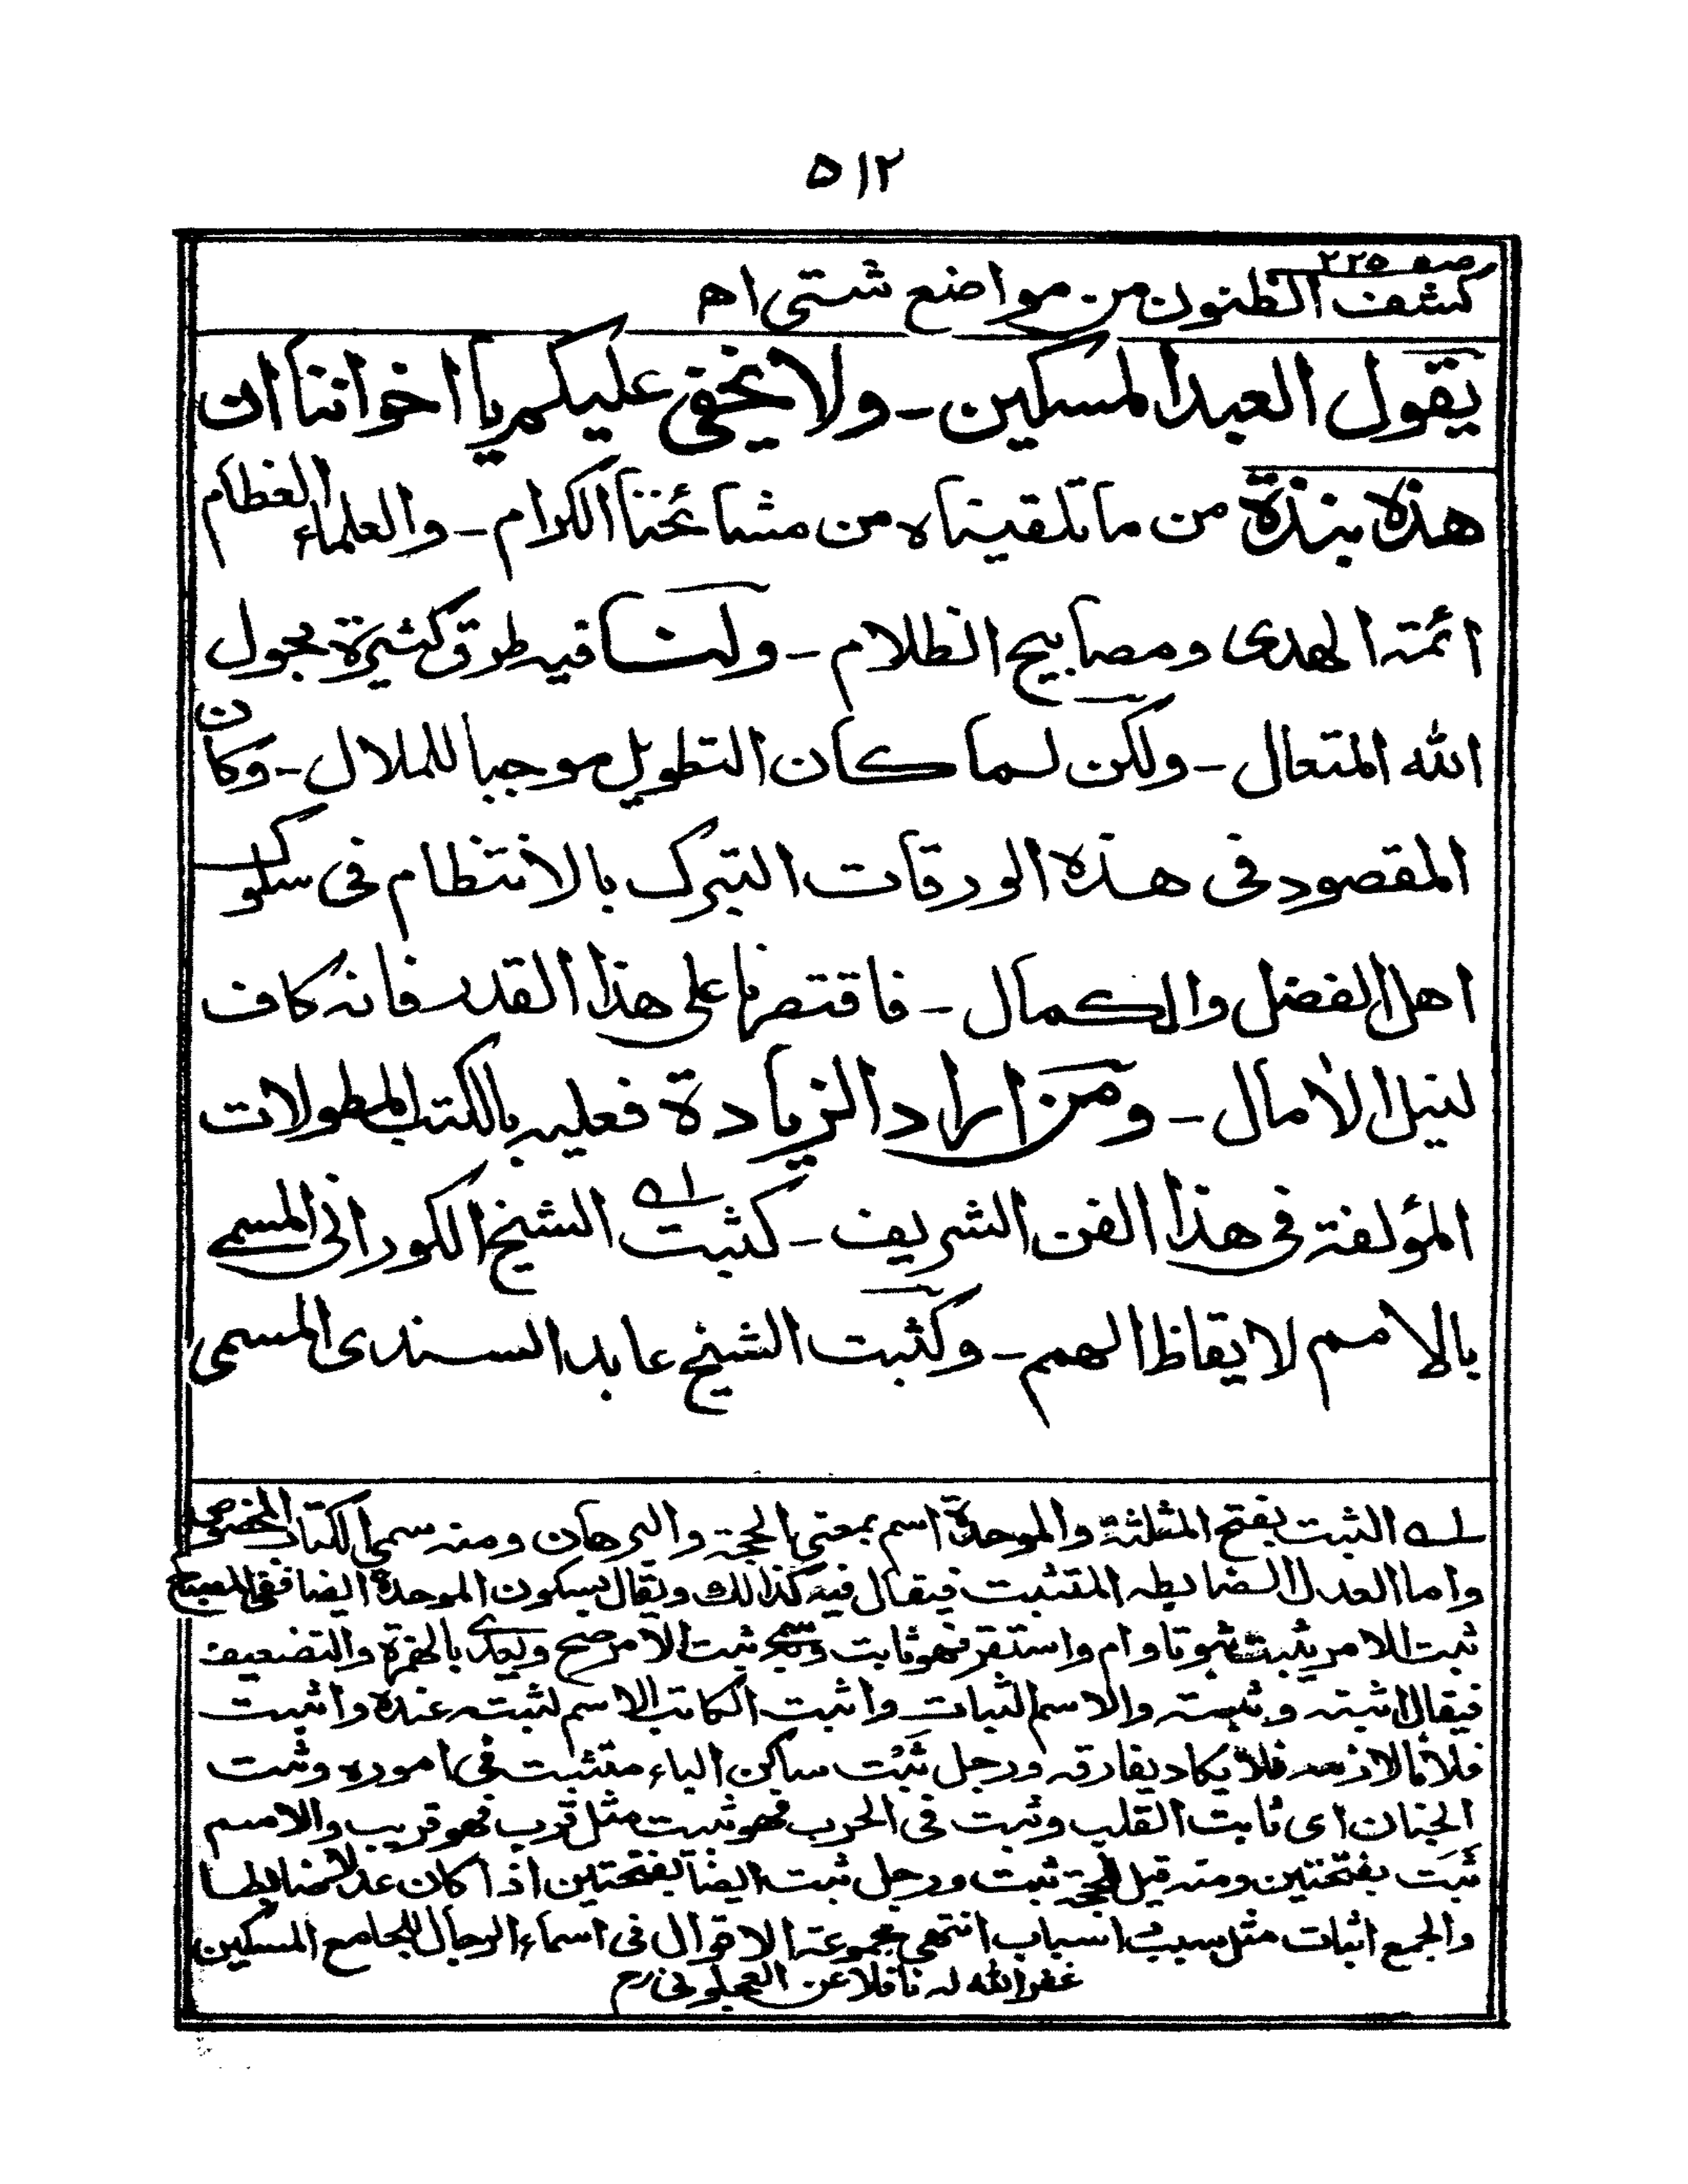 ٥١٢
صـ ٢٢٥
كشف الظنون من مواضع شتى اھ
يقول العبد المسكين ـ ولا يخفى عليكم يا اخواننا ان
هذه بنذة من ما تلقيناه من مشائخنا الكرام ـ والعلماء العظام
ائمة الهدى ومصابيح الظلام ـ ولنا فيه طرق كثيرة بحول
الله المتعال ـ ولكن لما كان التطويل موجبا للملال ـ وكان
المقصود فى هذه الورقات التبرك بالانتظام فى سلوك
اهل الفضل والكمال ـ فاقتصرنا على هذا القدر فانه كاف
لنيل الامال ـ ومن اراد الزيادة فعليه بالكتب المطولات
المؤلفة فى هذا الفن الشريف ـ كثبت ١ه الشيخ الكورانى المسمى
بالامم لايقاظ الهمم ـ وكثبت الشيخ عابد السندى المسمى
١ه الثبت بفتح المثلثة والموحدة اسم بمعنى الحجة والبرهان ومنه سمى الكتاب المخصوص
واما العدل الضابطه المتثبت فيقال فيه كذالك ويقال بسكون الموحدة ايضا ففى المصباح
ثبت الامر يثبت ثبوتا دام واستقر فهو ثابت وبه سمى ثبت الامر صح ويعدى بالهمزة والتضعيف
فيقال اثبته وثبته والاسم الثبات واثبت الكاتب الاسم لثبته عنده واثبت
فلانا لازمه فلا يكاد يفارقه ورجل ثَبْت ساكن الباء متثبت فى اموره وثبت
الجنان اى ثابت القلب وثبت فى الحرب فهو ثبيت مثل قرب فهو قريب والاسم
ثَبَت بفتحتين ومنه قيل للحجة ثبت ورجل ثبت ايضا بفتحتين اذا كان عدلا ضابطا
والجمع اثبات مثل سبب اسباب انتهى مجموعة الاقوال فى اسماء الرجال للجامع المسكين
غفر الله له ناقلا عن العجلونى رح